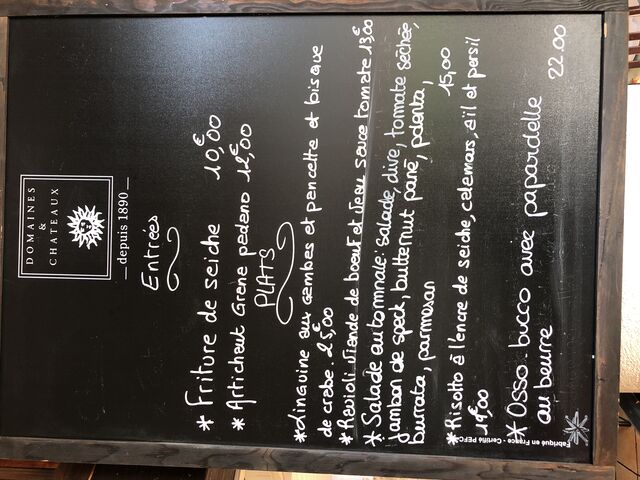 DOMAINES
&
CHATEAUX
depuis 1890
Entrées
* Friture de seiche 10,00
* Artichaut Grana padano 12,00€
PLATS
* Linguine aux gambas et pancetta et bisque
de crabe. 25,00€
* Ravioli viande de boeuf et veau sauce tomate 13,00€
* Salade automnale: salade, olive, tomate séchée,
jambon de speck, butternut pané, polenta,
burrata, parmesan 15,00
* Risotto à l'encre de seiche, calamars, ail et persil
19,00€
* Osso-bucco avec papardelle
au beurre 22.00
Fabriqué en France - Certifié PEFC